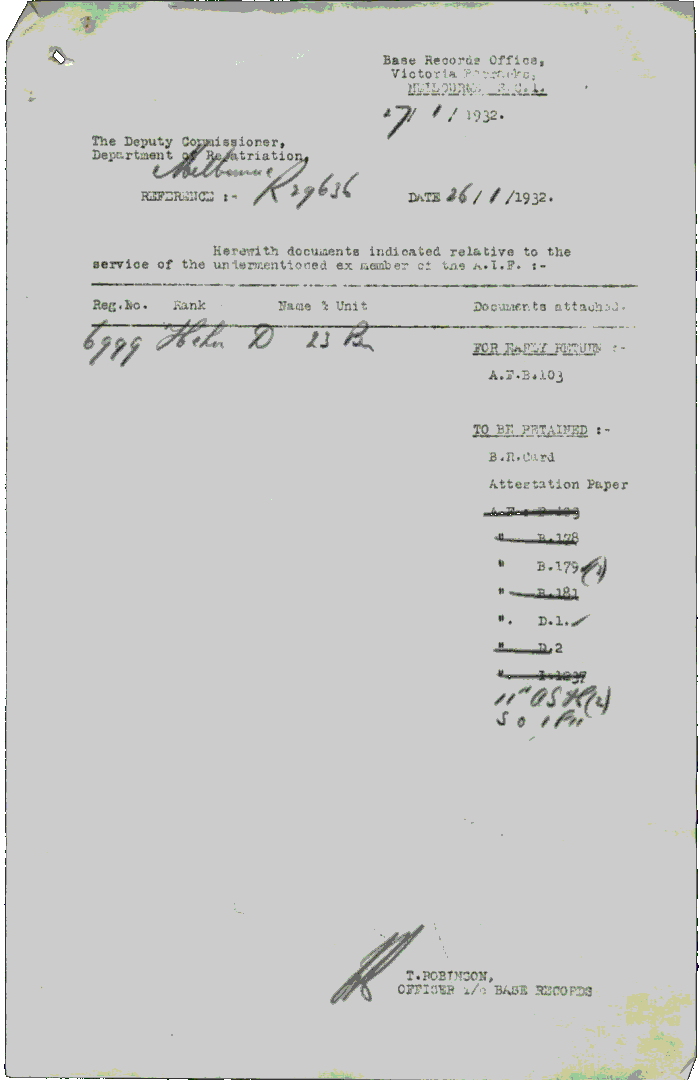 Base Records Office,
Victoria Barracks,
MELBOURNE S.C.1.
27/1/1932.
The Deputy Commissioner,
Department of Repatriation,
Melbourne
REFERENCE :- R29636 DATE 26/1/1932.
Herewith documents indicated relative to the
service of the undermentioned ex member of the A.I.F. :-
Reg.No. Rank Name & Unit Documents attached.
6999 Hehir D 23 Bn
FOR EARLY RETURN :-
A.F.B.103
TO BE RETAINED :-
B.R.Card
Attestation Paper
A.F. B.103
" B.178
" B.179 (1)
" B.181
". D.1.
" D.2
". I.1237
11th (2)
T.ROBINSON,
OFFICER i/c BASE RECORDS